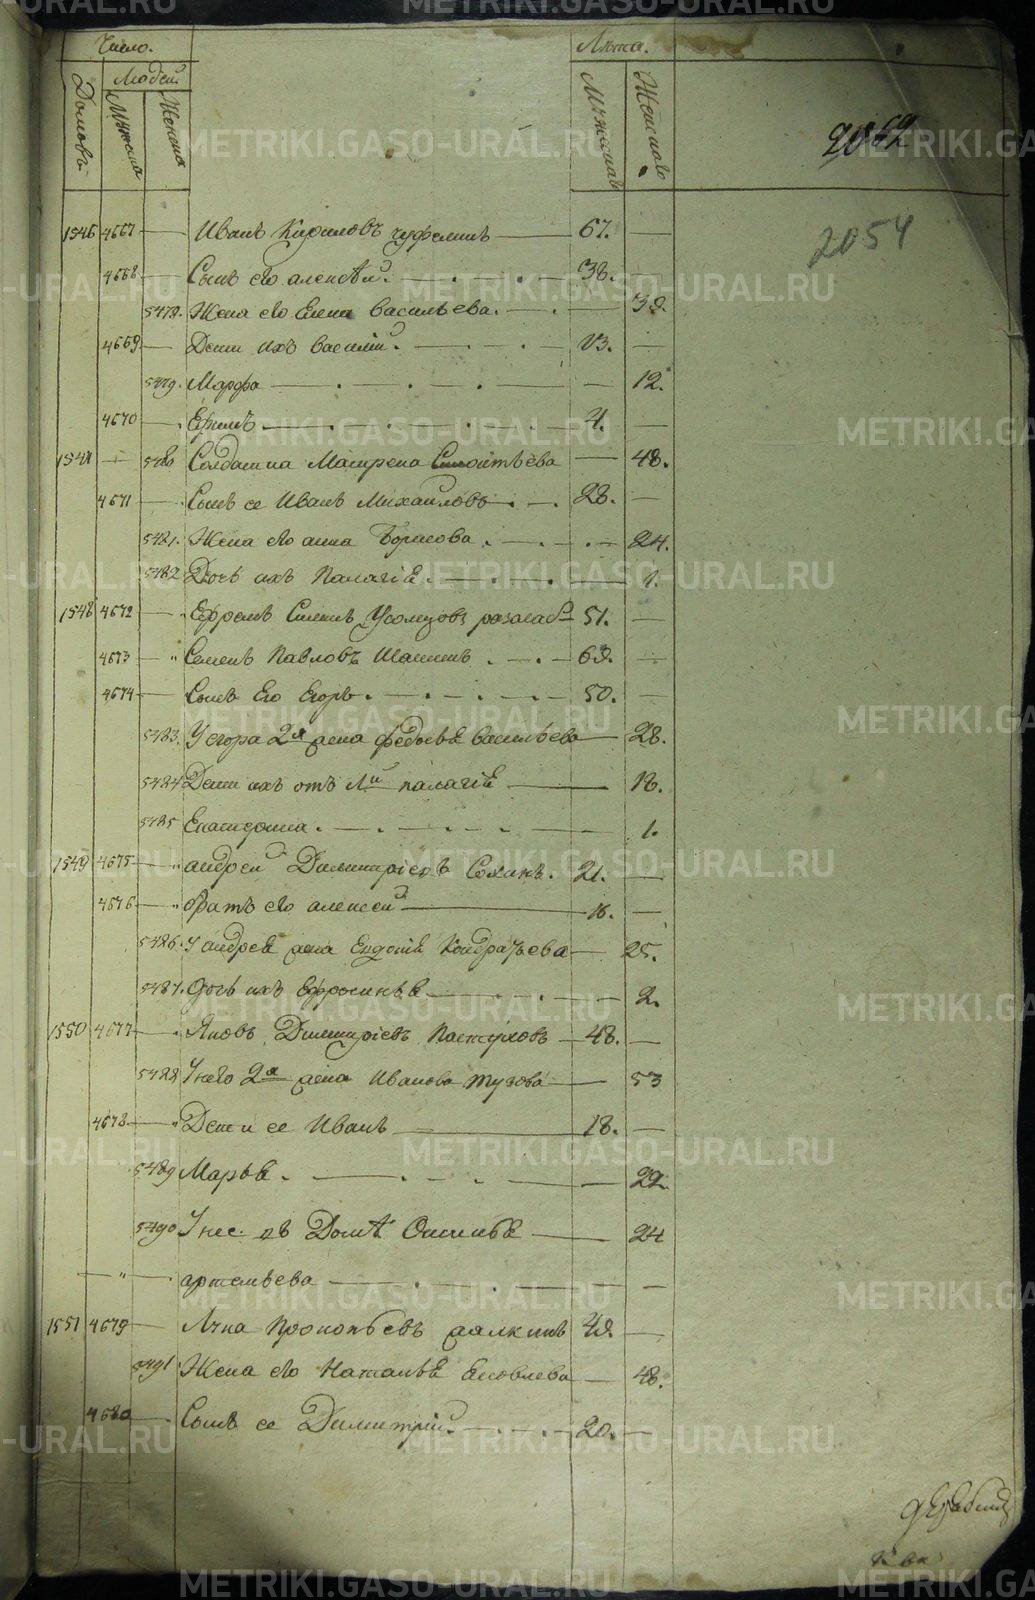 Число.
Лѣта.
Домовъ
Людей.
Мужеска
Женска
Мужеска
Женска
2062
2054
1546 4667 — Иванъ Кириловъ — 67. —
4668 — Сынъ его алексѣй. — 38. —
5478. Жена его Елена Васильева. — 38.
4669 — Дети ихъ Василий. — 13. —
5479. Марфа — 12.
4670 — Ефимъ — 4. —
1547 — 5480 Солдатка Матрена — 48.
4671 — Сынъ ее Иванъ Михайловъ — 28. —
5481. Жена его анна Борисова. — 24.
5482 Дочь ихъ Палагіѣ. — 1.
1548 4672 — Ефремъ Усолцовъ — 51. —
4673 — Семенъ Павловъ — 68. —
4674 — Сынъ Его Егоръ. — 50. —
5483. У егора 2я жена федосьѣ Васильева — 28.
5484 Дети ихъ отъ 1й палагіѣ — 18.
5485 Екатерина. — 1.
1549 4675 — андрей Димитріевъ — 21. —
4676 — братъ его алексей — 16. —
5486. У андрея жена Евдокіѣ Кондратьева — 25.
5487. дочь ихъ Ефросиньѣ — 2.
1550 4677 — Яковъ Димитріевъ Пастуховъ — 48. —
5488 У него 2я жена Иванова — 53
4678 — Дети ее Иванъ — 18. —
5489 Марьѣ. — 22.
5490 У нее въ Домѣ — 24
артемьева —
1551 4679 — Лука Прокопьевъ — 48 —
5491 Жена его Натальѣ Яковлева — 48.
4680 — Сынъ ее Димитрий — 20. —
METRIKI.GASO-URAL.RU